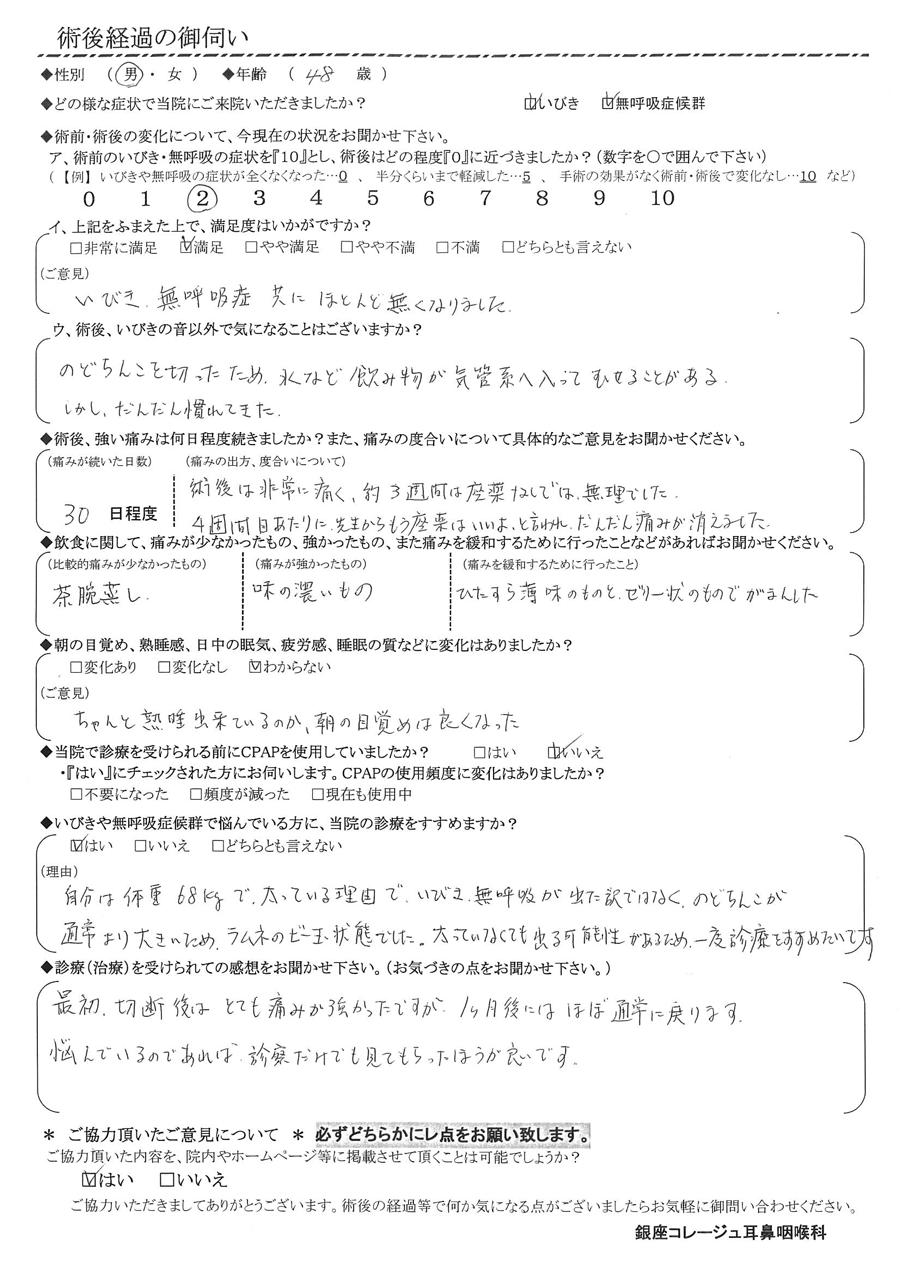 術後経過の御伺い
◆性別 (男・女) ◆年齢 (48 歳)
◆どの様な症状で当院にご来院いただきましたか? ☑いびき ☑無呼吸症候群
◆術前・術後の変化について、今現在の状況をお聞かせ下さい。
ア、術前のいびき・無呼吸の症状を『10』とし、術後はどの程度『0』に近づきましたか?(数字を○で囲んで下さい)
(【例】いびきや無呼吸の症状が全くなくなった…0 、 半分くらいまで軽減した…5 、 手術の効果がなく術前・術後で変化なし…10 など)
0 1 2 3 4 5 6 7 8 9 10
イ、上記をふまえた上で、満足度はいかがですか?
□非常に満足 ☑満足 □やや満足 □やや不満 □不満 □どちらとも言えない
(ご意見)
いびき、無呼吸症 共に ほとんど無くなりました。
ウ、術後、いびきの音以外で気になることはございますか?
のどちんこを切ったため、水など飲み物が気管系へ入って むせることがある。
しかし、だんだん慣れてきた。
◆術後、強い痛みは何日程度続きましたか?また、痛みの度合いについて具体的なご意見をお聞かせください。
(痛みが続いた日数) (痛みの出方、度合いについて)
術後は非常に痛く、約3週間は座薬なしでは、無理でした。
30 日程度
4週間目あたりに、先生からもう座薬はいいよ、と言われ、だんだん痛みが消えました。
◆飲食に関して、痛みが少なかったもの、強かったもの、また痛みを緩和するために行ったことなどがあればお聞かせください。
(比較的痛みが少なかったもの) (痛みが強かったもの) (痛みを緩和するために行ったこと)
茶腕蒸し 味の濃いもの ひたすら薄味のものと、ゼリー状のもので がまんした
◆朝の目覚め、熟睡感、日中の眠気、疲労感、睡眠の質などに変化はありましたか?
□変化あり □変化なし ☑わからない
(ご意見)
ちゃんと熟睡出来ているのか、朝の目覚めは良くなった
◆当院で診療を受けられる前にCPAPを使用していましたか? □はい ☑いいえ
・『はい』にチェックされた方にお伺いします。CPAPの使用頻度に変化はありましたか?
□不要になった □頻度が減った □現在も使用中
◆いびきや無呼吸症候群で悩んでいる方に、当院の診療をすすめますか?
☑はい □いいえ □どちらとも言えない
(理由)
自分は体重68kgで、太っている理由で、いびき、無呼吸が出た訳ではなく、のどちんこが
通常より大きいため、ラムネのビー玉状態でした。太っていなくても出る可能性があるため、一度診療をすすめたいです
◆診療(治療)を受けられての感想をお聞かせ下さい。(お気づきの点をお聞かせ下さい。)
最初、切断後は とても痛みが強かったですが、1ヶ月後には ほぼ通常に戻ります。
悩んでいるのであれば、診察だけでも見てもらったほうが良いです。
* ご協力頂いたご意見について * 必ずどちらかにレ点をお願い致します。
ご協力頂いた内容を、院内やホームページ等に掲載させて頂くことは可能でしょうか?
☑はい □いいえ
ご協力いただきましてありがとうございます。術後の経過等で何か気になる点がございましたらお気軽に御問い合わせください。
銀座コレージュ耳鼻咽喉科